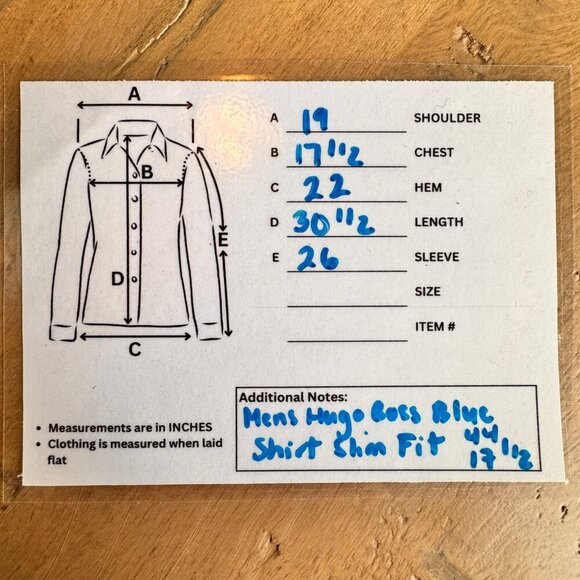 A
B
E
D
C
A 19 SHOULDER
B 17 1/2 CHEST
C 22 HEM
D 30 1/2 LENGTH
E 26 SLEEVE
SIZE
ITEM #
• Measurements are in INCHES
• Clothing is measured when laid
flat
Additional Notes:
Mens Hugo Boss Blue
Shirt Slim Fit 44
17 1/2